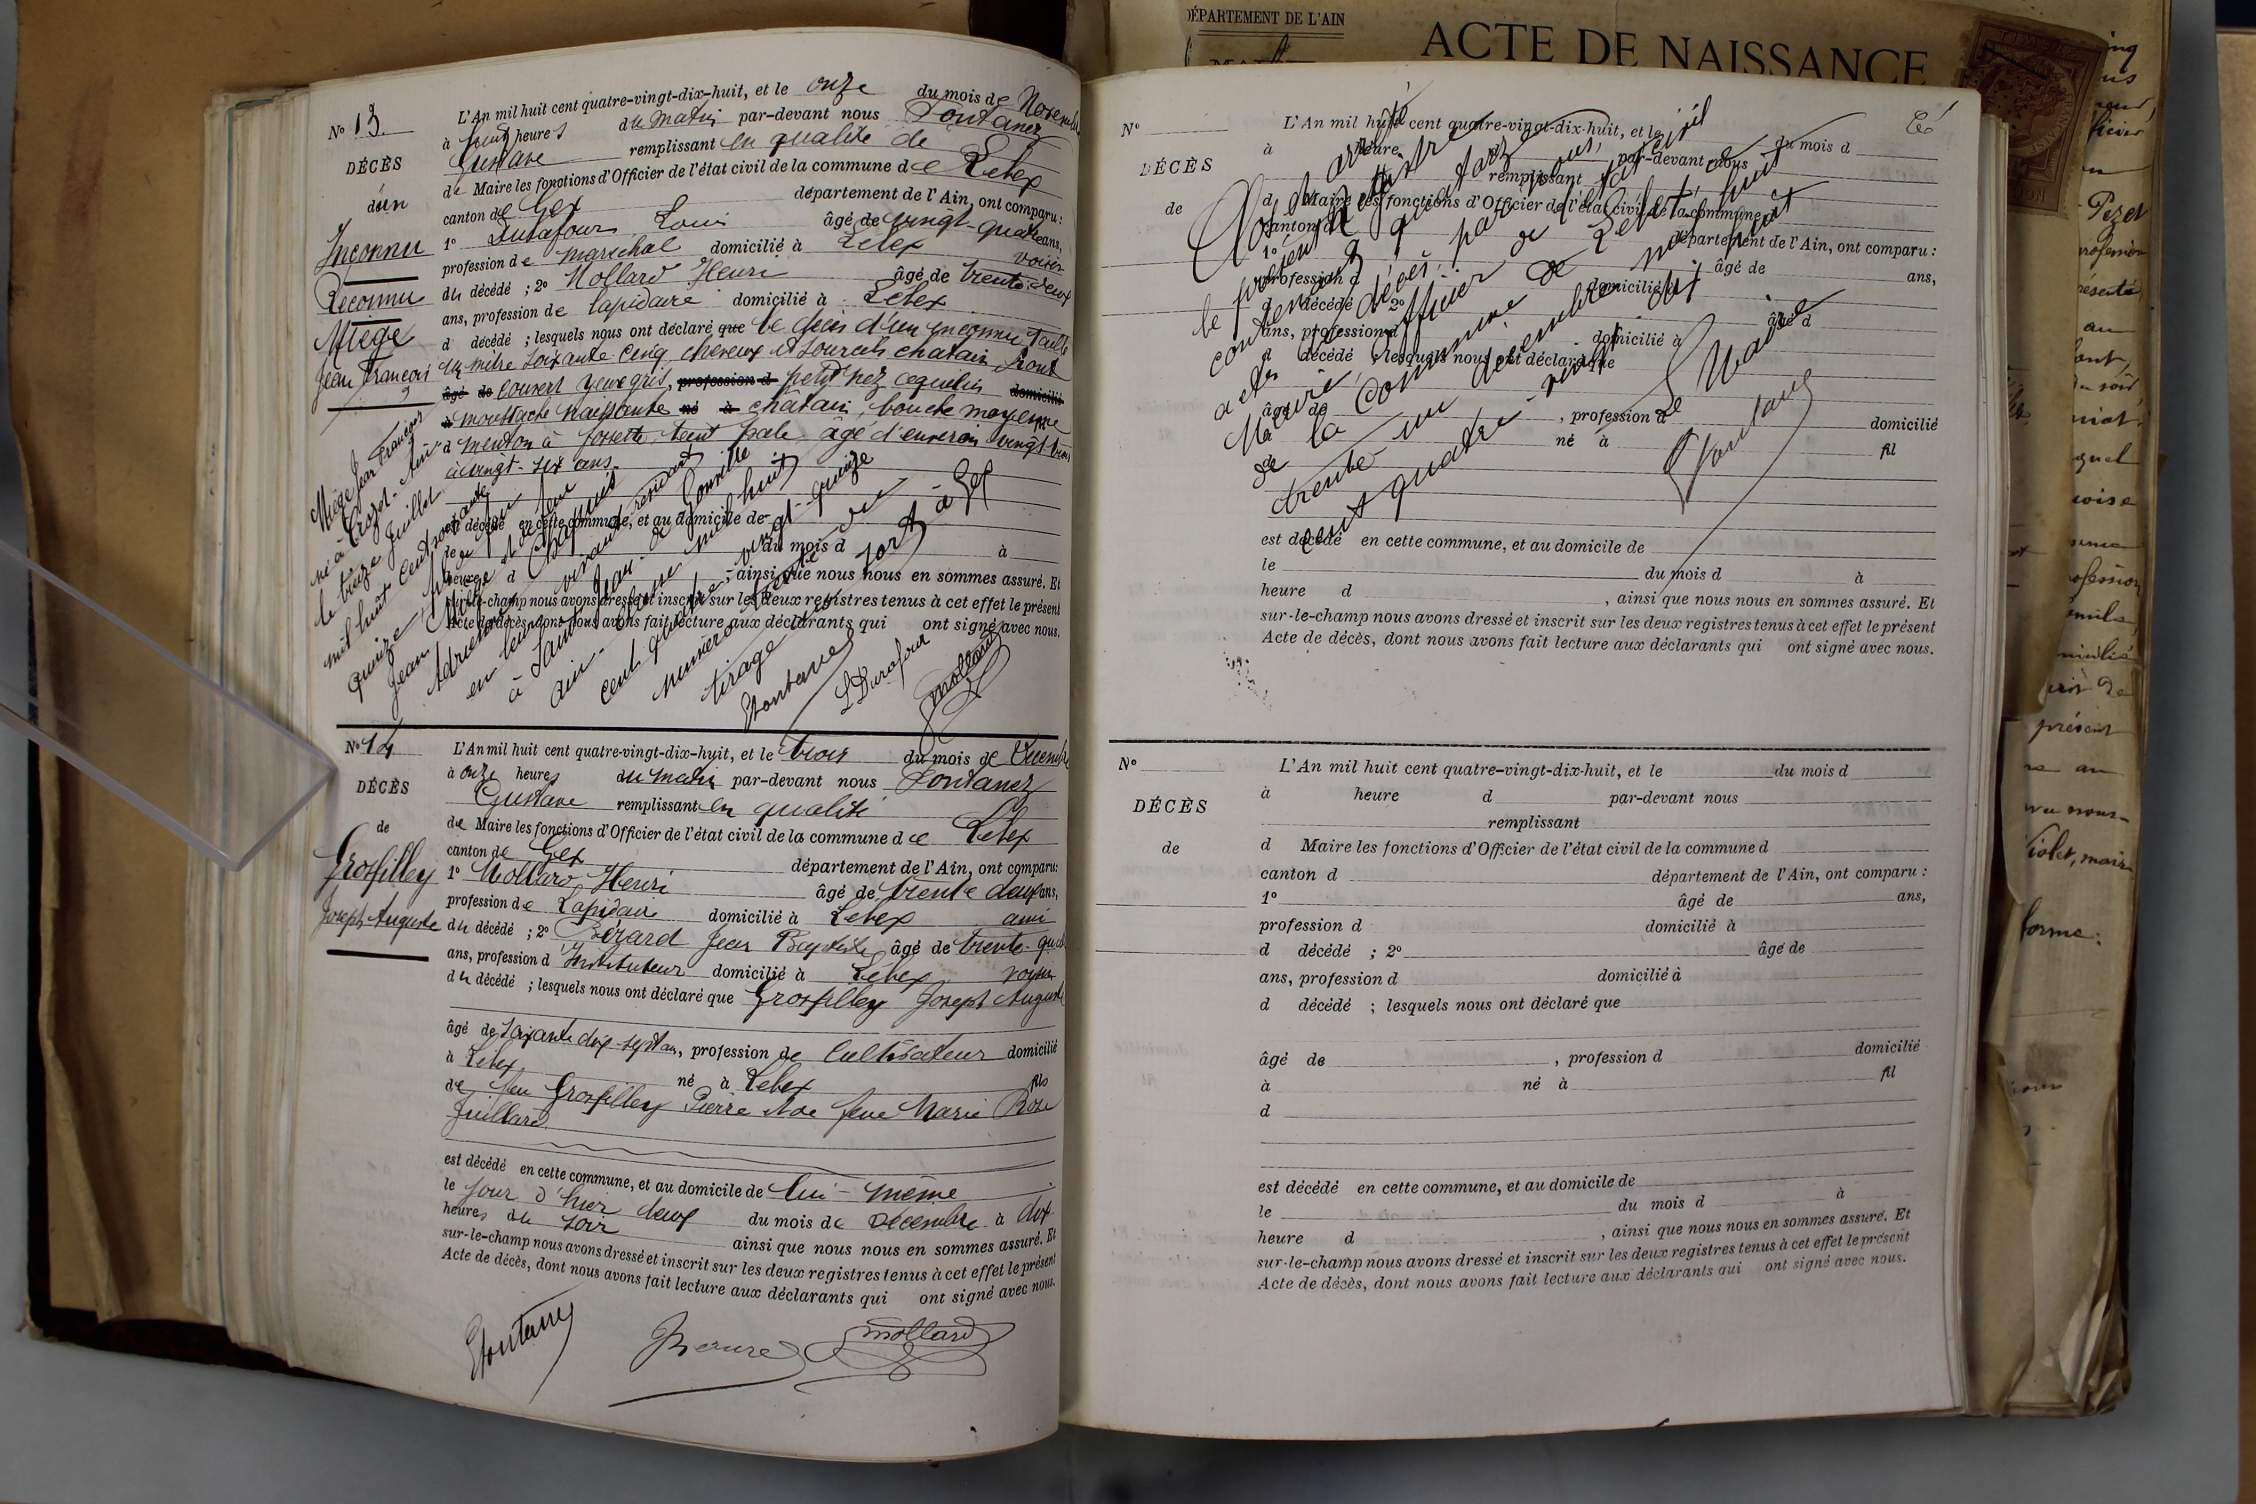 DÉPARTEMENT DE L'AIN
ACTE DE NAISSANCE
No 13.
DÉCÈS
d'un
Inconnu
Reconnu
Miège
Jean François
L'An mil huit cent quatre-vingt-dix-huit, et le onze du mois de Novembre
à huit heures du matin par-devant nous Fontanez
Gustave remplissant en qualité de
de Maire les fonctions d'Officier de l'état civil de la commune de Lelex
canton de Gex département de l'Ain, ont comparu :
1o Dufafour Louis âgé de vingt-quatre ans,
profession de maréchal domicilié à Lelex voisin
du décédé ; 2o Mollard Henri âgé de trente-deux
ans, profession de lapidaire domicilié à Lelex
d décédé ; lesquels nous ont déclaré que le décès d'un inconnu taille
un mètre soixante cinq, cheveux et sourcils chatain front
âgé de couvert yeux gris, profession d petit nez aquilin domicilié
à moustache naissante né à châtain, bouche moyenne
d menton à fossette teint pale âgé d'environ vingt-trois
à vingt-six ans.
est décédé en cette commune, et au domicile de
le du mois d à
heure d ainsi que nous nous en sommes assuré. Et
sur-le-champ nous avons dressé et inscrit sur les deux registres tenus à cet effet le présent
Acte de décès, dont nous avons fait lecture aux déclarants qui ont signé avec nous.
Miège Jean François
né à Crozet - Ain
le treize Juillet
mil huit cent soixante
quinze fils de feu
Jean Miège et de feue
Adrienne Chapuis
en leur vivant résidant
à Saint Jean de Gonville
ain. Classe mil huit
cent quatre-vingt-quinze
numéro trente du
tirage au sort à Gex
Fontanez
L. Durafour
Mollard
No 14
DÉCÈS
de
Grosfilley
Joseph Auguste
L'An mil huit cent quatre-vingt-dix-huit, et le trois du mois de Décembre
à onze heures du matin par-devant nous Fontanez
Gustave remplissant en qualité
de Maire les fonctions d'Officier de l'état civil de la commune de Lelex
canton de Gex département de l'Ain, ont comparu:
1o Mollard Henri âgé de trente deux ans,
profession de Lapidaire domicilié à Lelex ami
du décédé ; 2o Bérard Jean Baptiste âgé de trente-quatre
ans, profession d'Instituteur domicilié à Lelex voisin
du décédé ; lesquels nous ont déclaré que Grosfilley Joseph Auguste
âgé de soixante dix-sept ans, profession de Cultivateur domicilié
à Lelex né à Lelex fils
de feu Grosfilley Pierre et de feue Marie Rose
Juillard
est décédé en cette commune, et au domicile de lui-même
le jour d'hier deux du mois de Décembre à dix
heures du soir ainsi que nous nous en sommes assuré. Et
sur-le-champ nous avons dressé et inscrit sur les deux registres tenus à cet effet le présent
Acte de décès, dont nous avons fait lecture aux déclarants qui ont signé avec nous.
Fontanez
Mollard
No
DÉCÈS
de
L'An mil huit cent quatre-vingt-dix-huit, et le du mois d
à heure d par-devant nous
remplissant
d Maire les fonctions d'Officier de l'état civil de la commune d
canton d département de l'Ain, ont comparu :
1o âgé de ans,
profession d domicilié à
d décédé ; 2o âgé d
ans, profession d domicilié à
d décédé ; lesquels nous ont déclaré que
âgé de , profession d domicilié
à né à fil
est décédé en cette commune, et au domicile de
le du mois d à
heure d , ainsi que nous nous en sommes assuré. Et
sur-le-champ nous avons dressé et inscrit sur les deux registres tenus à cet effet le présent
Acte de décès, dont nous avons fait lecture aux déclarants qui ont signé avec nous.
Clos et arrêté
le présent registre
contenant quatorze
actes de décès, par nous,
Maire, officier de l'état civil
de la Commune de Lelex, ce
trente-un décembre mil huit
cent quatre-vingt dix huit
Le Maire
Fontanez
No
DÉCÈS
de
L'An mil huit cent quatre-vingt-dix-huit, et le du mois d
à heure d par-devant nous
remplissant
d Maire les fonctions d'Officier de l'état civil de la commune d
canton d département de l'Ain, ont comparu :
1o âgé de ans,
profession d domicilié à
d décédé ; 2o âgé de
ans, profession d domicilié à
d décédé ; lesquels nous ont déclaré que
âgé de , profession d domicilié
à né à fil
d
est décédé en cette commune, et au domicile de
le du mois d à
heure d , ainsi que nous nous en sommes assuré. Et
sur-le-champ nous avons dressé et inscrit sur les deux registres tenus à cet effet le présent
Acte de décès, dont nous avons fait lecture aux déclarants qui ont signé avec nous.
Pezet
profession
présent
Violet, maire
forme: